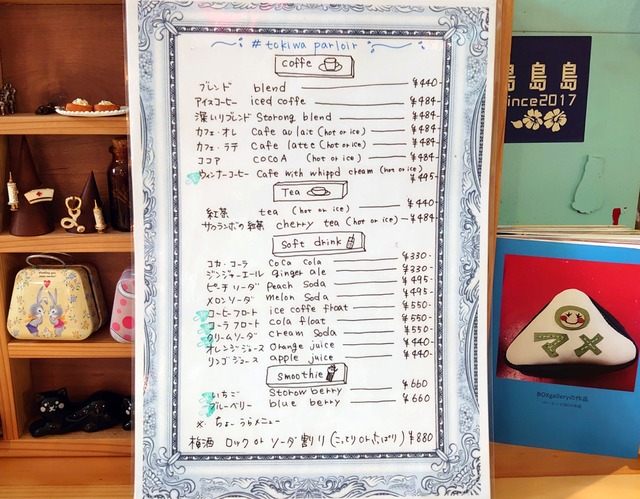 # tokiwa parloir
coffe
ブレンド blend ¥440-
アイスコーヒー iced coffe ¥484-
深いリブレンド Storong blend ¥484-
カフェ・オレ Cafe au lait (hot or ice) ¥484-
カフェ・ラテ Cafe latte (hot or ice) ¥484-
ココア cocoA (hot or ice) ¥484-
ウィンナーコーヒー Cafe with whippd cream (hot or ice) ¥495-
Tea
紅茶 tea (hot or ice) ¥440-
サクランボの紅茶 cherry tea (hot or ice) ¥484-
Soft drink
コカ・コーラ coca cola ¥330-
ジンジャーエール ginger ale ¥330-
ピーチソーダ peach Soda ¥495-
メロンソーダ melon Soda ¥495-
コーヒーフロート ice coffe float ¥550-
コーラフロート cola float ¥550-
クリームソーダ cream Soda ¥550-
オレンジジュース orange juice ¥440-
リンゴジュース apple juice ¥440-
smoothie
いちご Storow berry ¥660
ブルーベリー blue berry ¥660
※ ちょーうらメニュー
梅酒 ロック or ソーダ割り (こってり or さっぱり) ¥880
島島島
since2017
マメ
BOXgalleryの作品